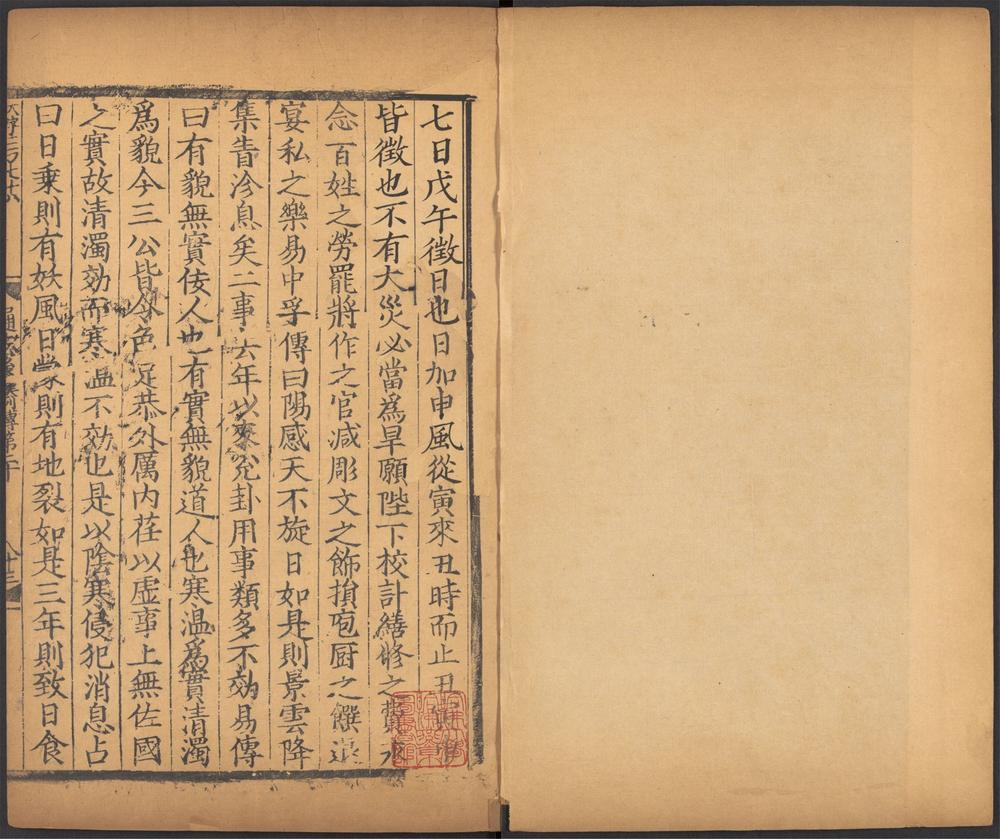 七日戊午徵日也日加申風從寅來丑時而止丑
皆徵也不有大災必當爲旱願陛下校計繕修之費永
念百姓之勞罷將作之官減彫文之飾損庖厨之饌退
宴私之樂易中孚傳曰陽感天不旋日如是則景雲降
集眚沴息矣二事去年以來兊卦用事類多不効易傳
曰有貌無實佞人也有實無貌道人也寒温爲實清濁
爲貌今三公皆令色足恭外厲内荏以虛事上無佐國
之實故清濁効而寒温不効也是以陰寒侵犯消息占
曰日乗則有妖風日蒙則有地裂如是三年則致日食